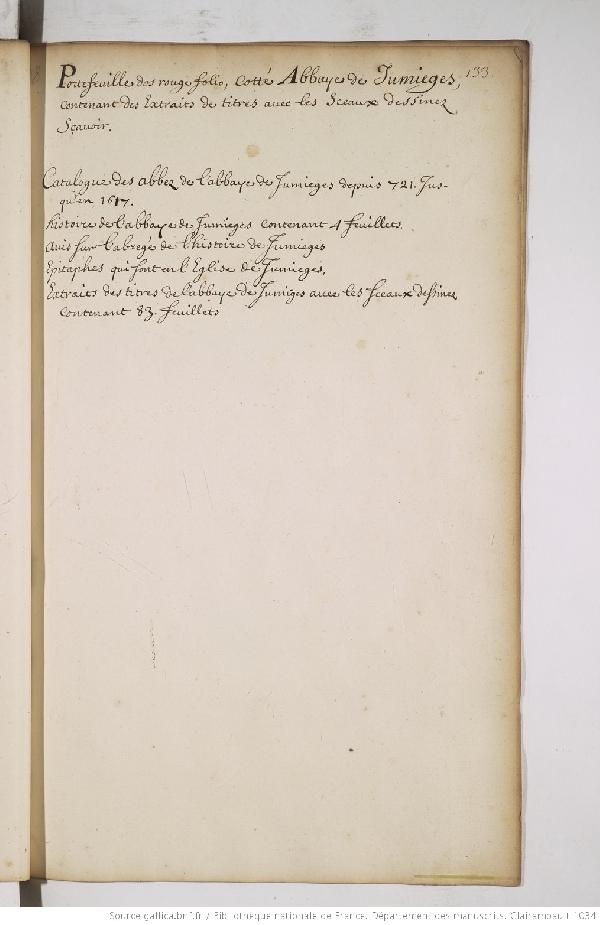 Portefeuille dos rouge folio, Cotté Abbaye de Jumieges, 133.
contenant des Extraits de titres avec les Sceaux dessinez
Sçavoir.
Catalogue des abbez de l'abbaye de Jumieges depuis 721. Jus-
qu'en 1617.
histoire de l'abbaye de Jumieges contenant 4 feuillets.
Avis sur l'abregé de l'histoire de Jumieges
Epitaphes qui sont en l'Eglise de Jumieges.
Extraits des titres de l'abbaye de Jumiges avec les sceaux dessinez
contenant 83. feuillets
Source gallica.bnf.fr / Bibliothèque nationale de France. Département des manuscrits. Clairambault 1034